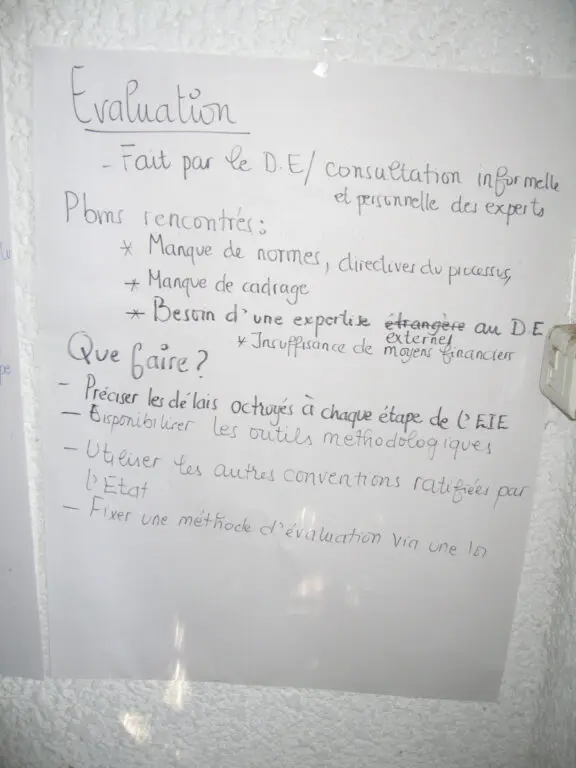 Evaluation
- Fait par le D.E/ consultation informelle
et personnelle des experts
Pbms rencontrés:
* Manque de normes, directives du processus,
* Manque de cadrage
* Besoin d'une expertise étrangère au D.E
externes
* Insuffisance de moyens financiers
Que faire?
- Préciser les délais octroyés à chaque étape de l'EIE
- Disponibiliser les outils methodologiques
- Utiliser les autres conventions ratifiées par
l'Etat
- Fixer une méthode d'évaluation via une loi